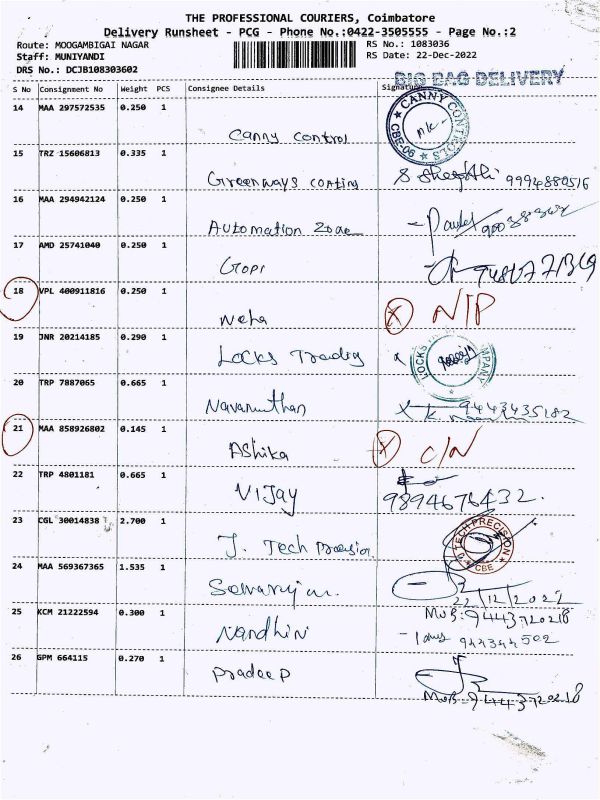 THE PROFESSIONAL COURIERS, Coimbatore
Delivery Runsheet - PCG - Phone No.:0422-3505555 - Page No.:2
Route: MOOGAMBIGAI NAGAR RS No.: 1083036
Staff: MUNIYANDI RS Date: 22-Dec-2022
DRS No.: DCJB108303602
BIG BAG DELIVERY
S No Consignment No Weight PCS Consignee Details Signature
14 MAA 297572535 0.250 1 Canny Control CANNY CONTROLS CBE-06
15 TRZ 15606813 0.335 1 Greenways 9994880516
16 MAA 294942124 0.250 1 Automation Zone
17 AMD 25741040 0.250 1 Gopi
18 VPL 400911816 0.250 1 Neha N/P
19 JNR 20214185 0.290 1 Locks Trading LOCKS COMPANY
20 TRP 7887065 0.665 1 9443435182
21 MAA 858926802 0.145 1 Ashika C/N
22 TRP 4801181 0.665 1 Vijay 9894676432.
23 CGL 30014838 2.700 1 J. Tech TECH PRECISION CBE
24 MAA 569367365 1.535 1 22/12/2022
MOB:9443720218
25 KCM 21222594 0.300 1 Nandhini
26 GPM 664115 0.270 1 Pradeep
MOB:9443720218